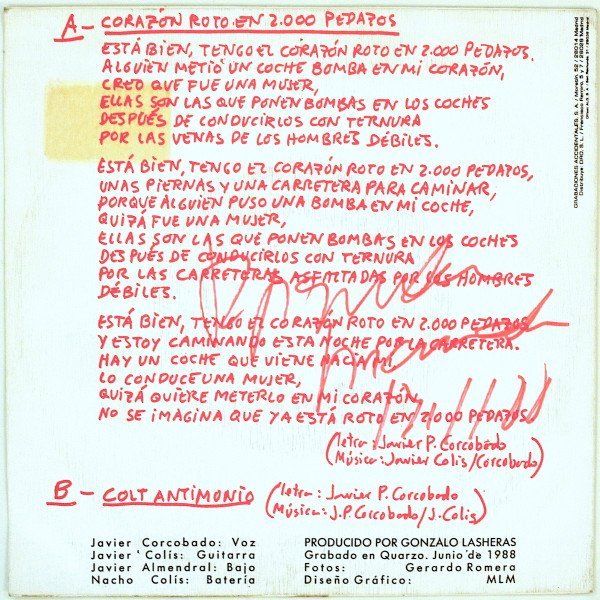 A- CORAZÓN ROTO EN 2.000 PEDAZOS
ESTÁ BIEN, TENGO EL CORAZÓN ROTO EN 2.000 PEDAZOS.
ALGUIEN METIÓ UN COCHE BOMBA EN MI CORAZÓN,
CREO QUE FUE UNA MUJER,
ELLAS SON LAS QUE PONEN BOMBAS EN LOS COCHES
DESPUÉS DE CONDUCIRLOS CON TERNURA
POR LAS VENAS DE LOS HOMBRES DÉBILES.
ESTÁ BIEN, TENGO EL CORAZÓN ROTO EN 2.000 PEDAZOS,
UNAS PIERNAS Y UNA CARRETERA PARA CAMINAR,
PORQUE ALGUIEN PUSO UNA BOMBA EN MI COCHE,
QUIZÁ FUE UNA MUJER,
ELLAS SON LAS QUE PONEN BOMBAS EN LOS COCHES
DESPUÉS DE CONDUCIRLOS CON TERNURA
POR LAS CARRETERAS ASFALTADAS POR LOS HOMBRES
DÉBILES.
ESTÁ BIEN, TENGO EL CORAZÓN ROTO EN 2.000 PEDAZOS
Y ESTOY CAMINANDO ESTA NOCHE POR LA CARRETERA.
HAY UN COCHE QUE VIENE HACIA MI
LO CONDUCE UNA MUJER,
QUIZÁ QUIERE METERLO EN MI CORAZÓN,
NO SE IMAGINA QUE YA ESTÁ ROTO EN 2.000 PEDAZOS.
(letra: Javier P. Corcobado
Música: Javier Colis/Corcobado)
B- COLT ANTIMONIO (letra: Javier P. Corcobado
Música: J.P. Corcobado/J. Colis)
Javier Corcobado: Voz
Javier Colís: Guitarra
Javier Almendral: Bajo
Nacho Colís: Batería
PRODUCIDO POR GONZALO LASHERAS
Grabado en Quarzo. Junio de 1988
Fotos: Gerardo Romera
Diseño Gráfico: MLM
GRABACIONES ACCIDENTALES, S. A.